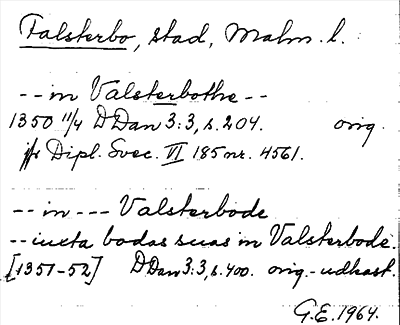 Falsterbo, stad, Malm. l.
-- in Valsterbothe --
1350 11/4 DDan 3:3, s. 204. orig.
jfr Dipl. Svec. VI 185 nr. 4561.
-- in --- Valsterbode
-- iuxta bodas suas in Valsterbode.
[1351-52] DDan 3:3, s. 400. orig.-udkast.
G.E. 1964.